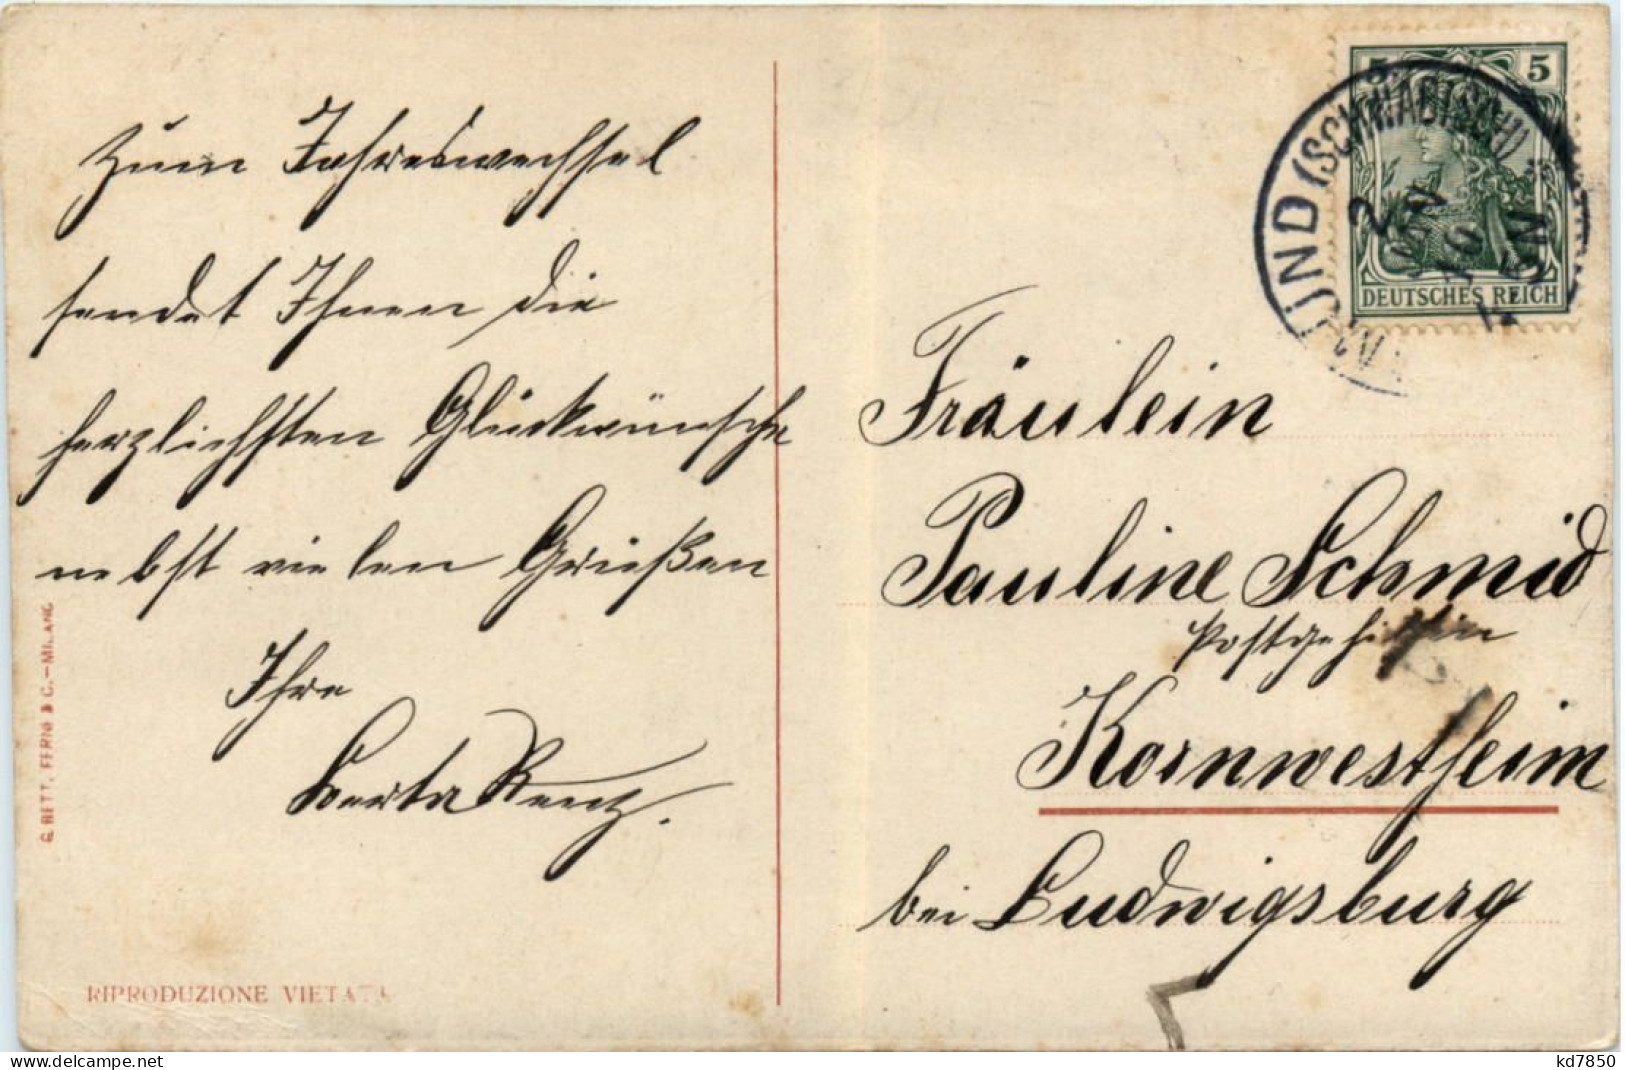 Zum Jahreswechsel
sendet Ihnen die
herzlichsten Glückwünsche
nebst vielen Grüßen
Ihre
Berta Renz.
G. BETT. FERNI & C.-MILANO
RIPRODUZIONE VIETATA
5 5
DEUTSCHES REICH
GMÜND (SCHWÄBISCH)
2
JAN
10
Fräulein
Pauline Schmid
Postgehilfin
Kornwestheim
bei Ludwigsburg
delcampe.net
kd7850